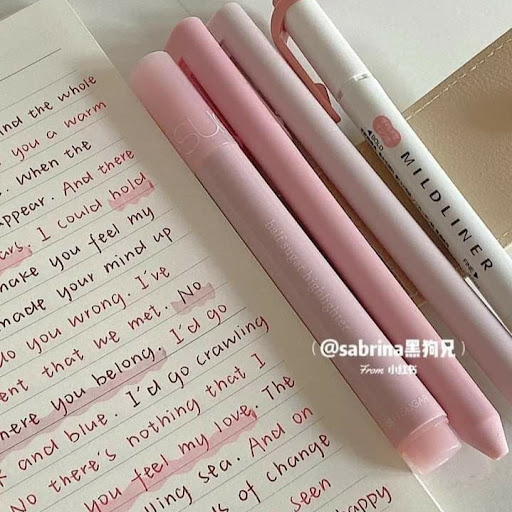 and the whole
you a warm
. When the
appear. And there
ars. I could hold
make you feel my
made your mind up
do you wrong. I've
ent that we met. No
here you belong. I'd go
k and blue. I'd go crawling
No there's nothing that I
you feel my love. The
lling sea. And on
ds of change
seen
happy
SU
half sugar highlighter
MILDLINER
BOLD
FINE
(@sabrina黑狗兄)
From 小红书